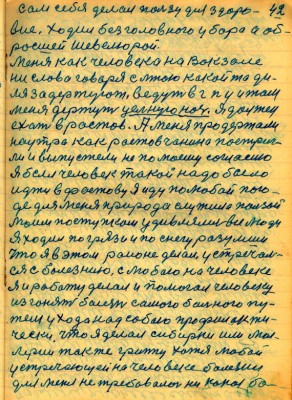 сам себя делал пользу для здоро- 42
вие. Ходил без головного убора а об-
росшей шевелюрой.
Меня как человека на Вокзале
ни слова говоря с мною какой та ди-
для задертуют, ведут в г п у и там
меня держут целную ноч. Я должен
ехат в растов. А меня продержали
на утра как ростовчанина постриг-
ли и выпустели не по моему согласию
Я был человек такой надо было
идти в фостову Я иду по любой пого-
де для меня природа служила пользой
Моим поступком удивляли-се люди
Я ходил по грязи и по снегу разумши
Что я в этом районе делал устречал-
ся с болезнию, с любою на человеке
Я и работу делал и помогал человеку
изгонят болезн самого больного пу-
тем ухода над собою профилакти-
чески, что я делал сибирки или мал-
лерии так-же грипу хотя любой
устречающей на человеке болезни
для меня не требовалос ни каког ба-